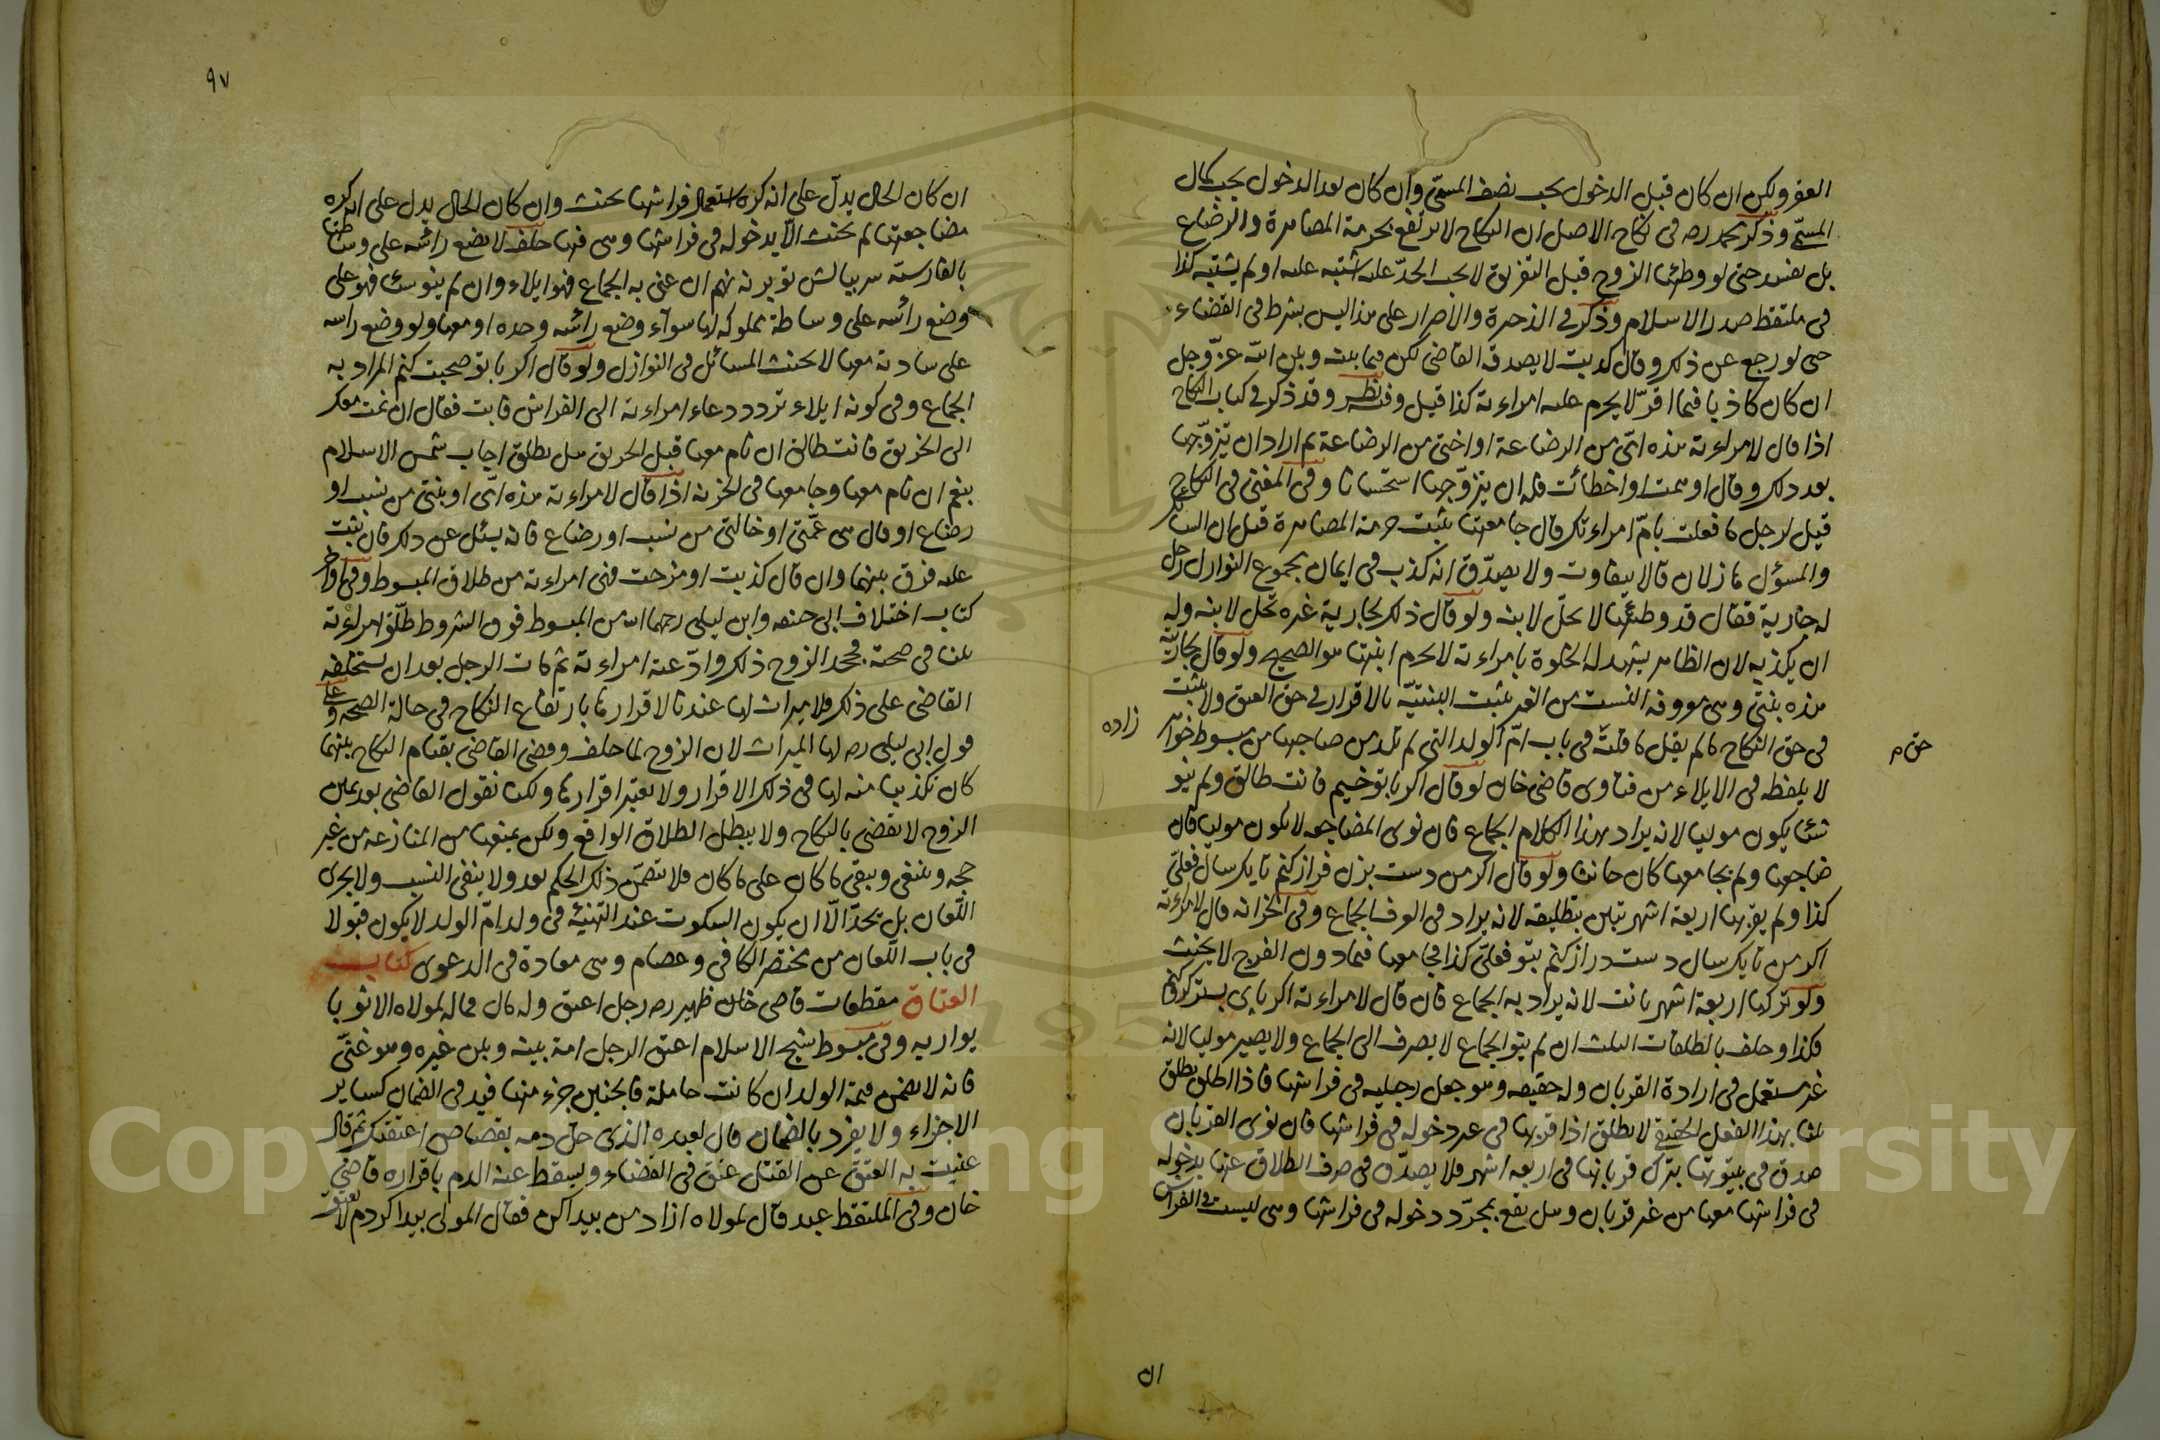 العقر ولكن ان كان قبل الدخول يجب نصف المسمّى وان كان بعد الدخول يجب كمال
المسمّى وذكر محمد رحه في نكاح الاصل ان النكاح لا يرتفع بحرمة المصاهرة والرضاع
بل يفسد حتى لو وطئها الزوج قبل التفريق لا يجب الحدّ عليه اشتبه عليه او لم يشتبه كذا
في ملتقط صدر الاسلام وذكر في الذخيرة والاصرار على هذا ليس بشرط في القضاء
حتى لو رجع عن ذلك وقال كذبت لا يصدقه القاضي لكن فيما بينه وبين الله عزّ وجل
ان كان كاذبا فيما اقرّ لا يحرم عليه امراءته كذا قيل وفيه نظر وقد ذكر في كتاب النكاح
اذا قال لامراءته هذه امّي من الرضاعة او اختي من الرضاعة ثم اراد ان يتزوّجها
بعد ذلك وقال اوهمت او اخطائت فله ان يتزوّجها استحسانا وفي المغني في النكاح
قيل لرجل ما فعلت بامّ امراءتك قال جامعتها يثبت حرمة المصاهرة قيل ان السائل
والمسؤل هازلان قالا يتفاوت ولا يصدّق انه كذب في ايمان مجموع النوازل رجل
له جارية فقال قد وطئتها لا تحلّ لابنه ولو قال ذلك لجارية غيره تحل لابنه وله
ان يكذبه لان الظاهر يشهد له الخلوة بامراءته لا يحرم ابنتها هو الصحيح ولو قال لجاريته
هذه بنتي وهي معروفة النسب من الغير يثبت البنتيّة بالاقرار في حق العتق ولا يثبت
في حق النكاح ما لم يقل ما قلته في باب امّ الولد التي لم تلد من صاحبها من مبسوط خواهر
زاده
حق م
لا يلفظه في الايلاء من فتاوى قاضي خان لو قال اكر باتو خسبم فانت طالق ولم ينو
شئا يكون موليا لانه يراد بهذا الكلام الجماع فان نوى المضاجعة لا يكون موليا فان
ضاجعها ولم يجامعها كان حانثا ولو قال اكر من دست بزن فراز كنم تا يكسال فعلىّ
كذا ولم يقربها اربعة اشهر تبين بتطليقه لانه يراد في العرف الجماع وفي الخزانه قال لامراءته
اكر من تا يكسال دست دراز كنم بتو فعلىّ كذا فجامعها فيما دون الفرج لا يحنث
ولو تركها اربعة اشهر بانت لانه يراد به الجماع فان قال لامراءته اكر پاي بستر كرد كنم
فكذا وحلف بالطلقات الثلث ان لم ينو الجماع لا يصرف الى الجماع ولا يصير موليا لانه
غير مستعمل في ارادة القربان وله حقيقه وهو جعل رجليه في فراشها فاذا اطلق يطلق
ثلثا بهذا الفعل الحقيقي لا يطلق اذا قربها في عدد دخوله في فراشها فان نوى القربان
صدق في بينونتها بترك قربانها في اربعة اشهر فلا يصدّق في صرف الطلاق عنها بدخوله
في فراشها معها من غير قربان وهل يقع بمجرّد دخوله في فراشها وهي ليست في الفراش
ان
٩٧
ان كان الحال يدلّ على انه كره استعمال فراشها يحنث وان كان الحال يدل على انه كره
مضاجعتها لم يحنث الّا بدخوله في فراشها وهي فيها حلف لا يضع رأسه على وساطتها
بالفارسية سر ببالش تو بر نه نهم ان عنى به الجماع فهو ايلاء وان لم ينو شئا فهو على
وضع رأسه على وساطة مملوكة لها سواء وضع رأسه وحده او معها ولو وضع راسه
على سادته معها لا يحنث المسائل في النوازل ولو قال اكر باتو صحبت كنم المراد به
الجماع وفي كونه ايلاء تردد دعاء امراءته الى الفراش فابت فقال ان نمت معكر
الى الخريق فانت طالق ان نام معها قبل الخريق هل يطلق اجاب شمس الاسلام
بنعم ان نام معها وجامعها في الخزنه اذا قال لامراءته هذه امّي او بنتي من نسب او
رضاع او قال هي عمّتي او خالتي من نسب او رضاع فانه يسئل عن ذلك فان يثبت
عليه فرق بينهما وان قال كذبت او مزحت فهي امراءته من طلاق المبسوط وفي اواخر
كتاب اختلاف ابي حنيفه وابن ليلى رحهما الله من المبسوط فوق الشروط طلّق امراءته
ثلثا في صحته فجحد الزوج ذلك وادّعته امراءته ثم مات الرجل بعد ان يستحلفه
القاضي على ذلك فلا ميراث لها عندنا لاقرارها بارتفاع النكاح في حالة الصحه وعلى
قول ابي ليلى رحه لها الميراث لان الزوج لما حلف وقضى القاضي بقيام النكاح بينهما
كان تكذيبا منه لها في ذلك الاقرار ولا يعتبر اقرارها ولكنا نقول القاضي بعد يمين
الزوج لا يقضي بالنكاح ولا يبطل الطلاق الواقع ولكن يمنعها من المنازعه من غير
حجه وينتفي ويبقى ما كان على ما كان فلا تضمّن ذلك الحكم بعد ولا ينفي النسب ولا يجري
اللّعان بل يحدّ الّا ان يكون السكوت عند التهنئة في ولد امّ الولد لا يكون قبولا
في باب اللّعان من مختصر الكافي وعصام وهي معادة في الدعوى كتاب
العتاق مقطعات قاضي خان ظهير رحه رجل اعتق وله مال فماله لمولاه الا ثوبا
يواريه وفي مبسوط شيخ الاسلام اعتق الرجل امة بينه وبين غيره وهو غنيّ
فانه لا يضمن قيمة الولد ان كانت حاملة فالجنين جزء منها فيد في الضمان كساير
الاجزاء ولا يفرد بالضمان قال لعبده الذي حلّ دمه بقصاص اعتقتك ثم قال
عنيت به العتق عن القتل عتق في القضاء ويسقط عنه الدم باقراره قاضي
خان وفي الملتقط عبد قال لمولاه ازاد من بيدا كن فقال المولى بيدا كردم لا يعتق